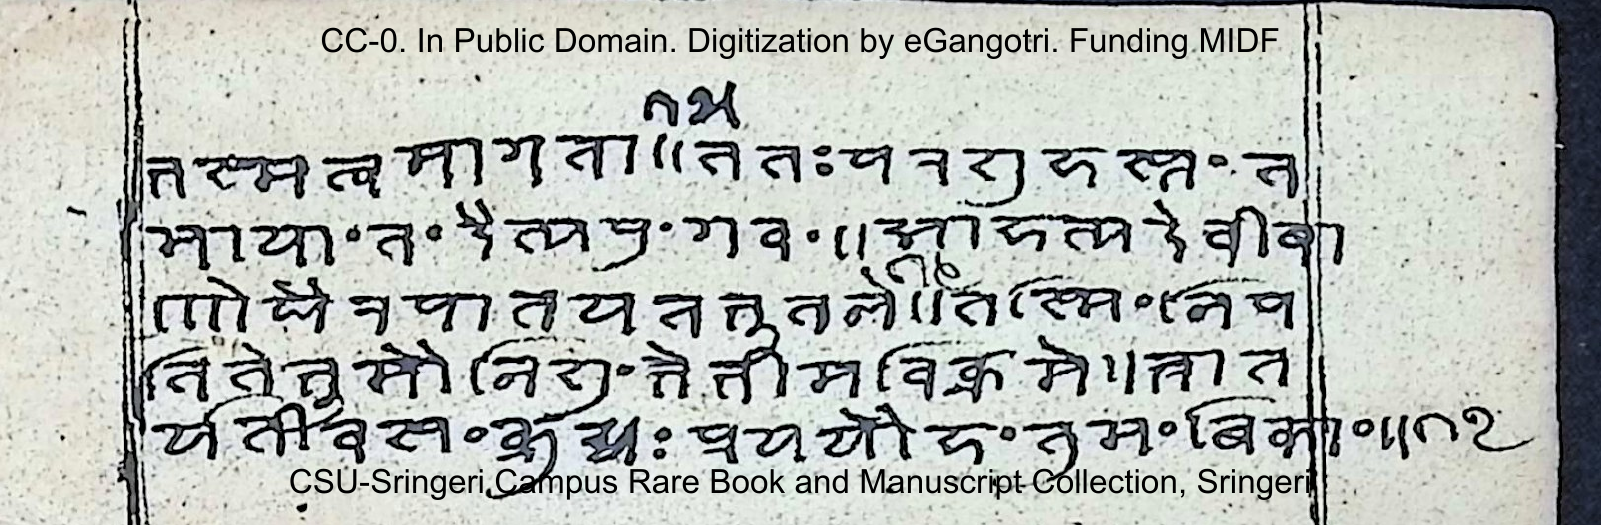 CC-0. In Public Domain. Digitization by eGangotri. Funding MIDF
१५
तस्मत्वमागता॥ततःपरशुहस्तंत
मायांतंदैत्यपुंगवं॥आहत्यदेवीबा
१६
णौघैरपातयतभूतले॥तस्मिंनिप
तितेभूमौनिशुंभेभीमविक्रमे॥भ्रात
र्यतीवसंक्रुद्धःप्रययौहंतुमंबिकां॥१७
CSU-Sringeri Campus Rare Book and Manuscript Collection, Sringeri